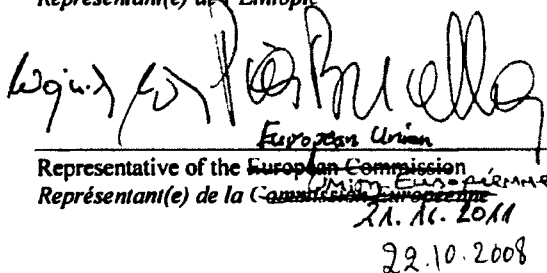 Représentant(e) de l'Ethiopie
European Union
Representative of the European Commission
Union Européenne
Représentant(e) de la Commission Européenne
21.11.2011
22.10.2008